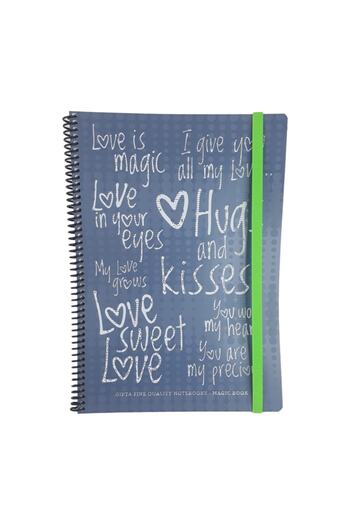 Love is
magic
I give you
all my Love..
Love
in your
eyes
Hugs
and
kisses
My Love
grows
Love
sweet
Love
You wo
my hear
You are
my preciou
GIPTA FINE QUALITY NOTEBOOKS - MAGIC BOOK